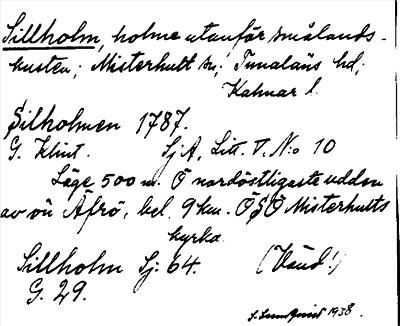 Sillholm, holme utanför smålands-
kusten; Misterhult sn; Tunaläns hd;
Kalmar l.
Silholmen 1787.
G. Klint. SjA, Litt. V. N:o 10
Läge 500 m. Ö nordöstligaste udden
av ön Äfrö, bel. 9 km. ÖSÖ Misterhults
kyrka.
Sillholm Sj. 64. (Vänd!)
G. 29.
S. Lundquist 1938.